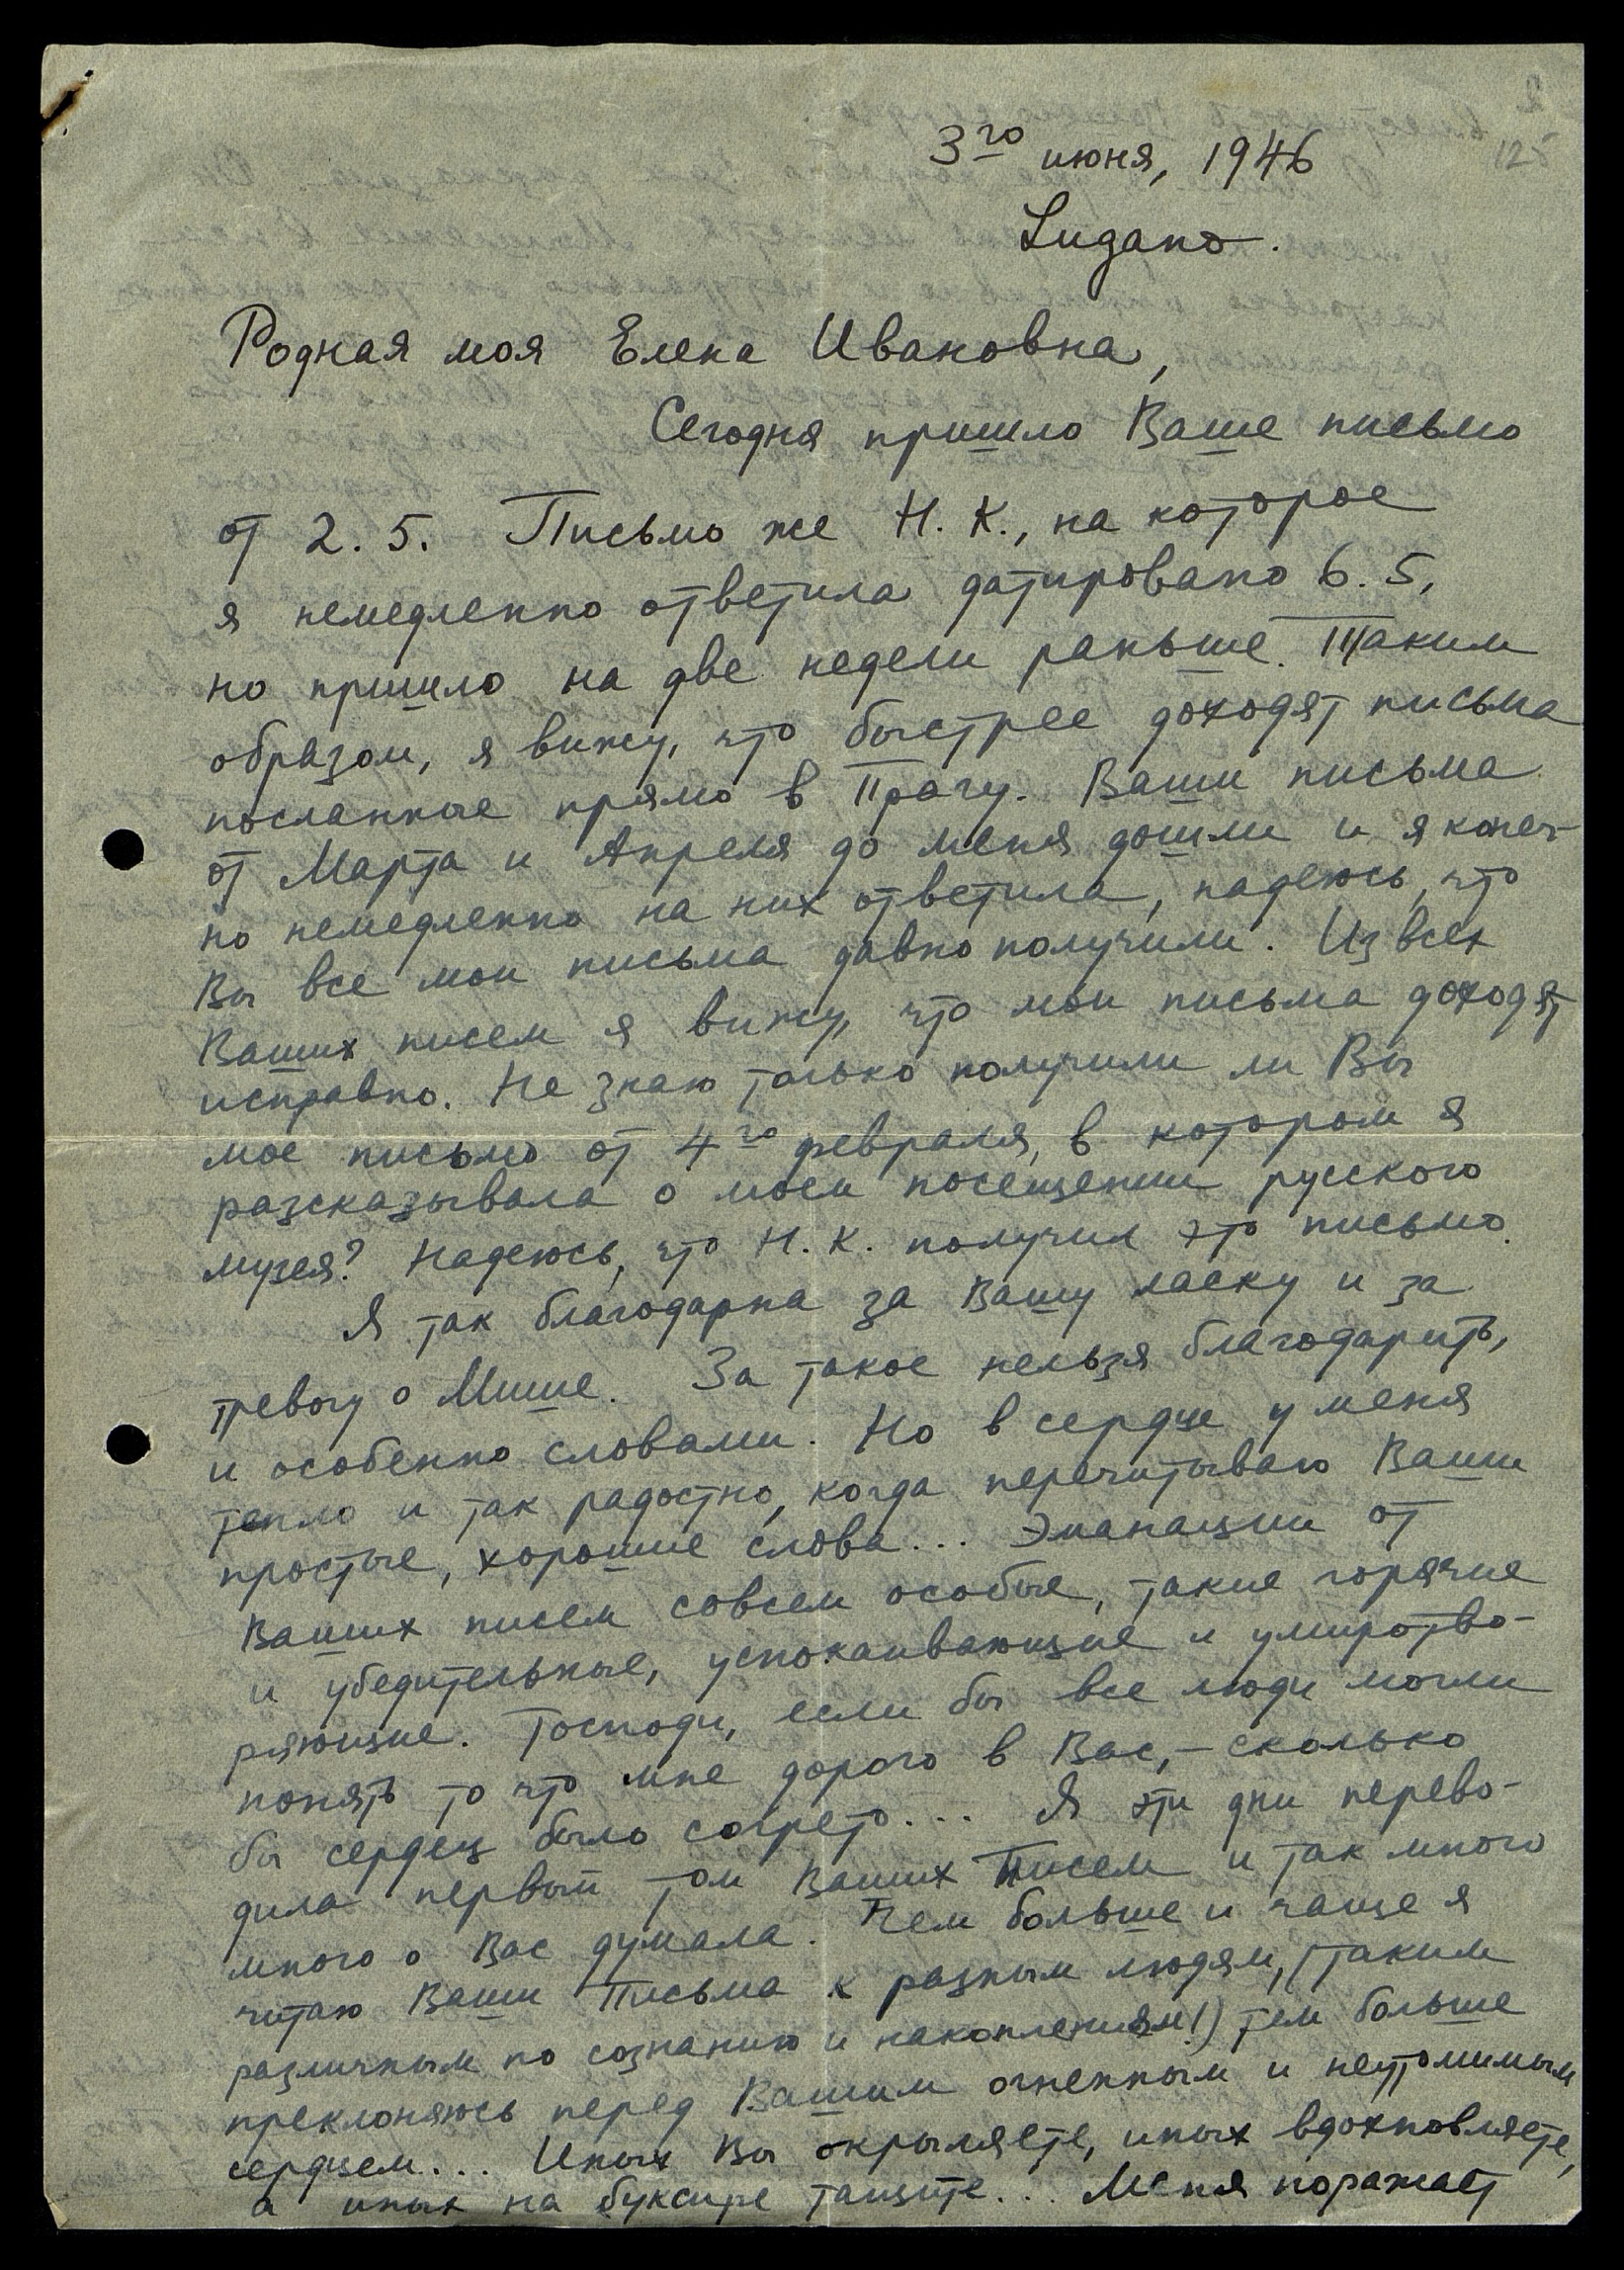 2
125
3го июня, 1946
Lugano.
Родная моя Елена Ивановна,
Сегодня пришло Ваше письмо
от 2. 5. Письмо же Н. К., на которое
я немедленно ответила датировано 6. 5,
но пришло на две недели раньше. Таким
образом, я вижу, что быстрее доходят письма
посланные прямо в Прагу. Ваши письма
от Марта и Апреля до меня дошли и я конеч-
но немедленно на них ответила, надеюсь, что
Вы все мои письма давно получили. Из всех
Ваших писем я вижу, что мои письма доходят
исправно. Не знаю только получили ли Вы
мое письмо от 4го февраля, в котором я
разсказывала о моем посещении русского
музея? Надеюсь, что Н. К. получил это письмо.
Я так благодарна за Вашу ласку и за
тревогу о Мише. За такое нельзя благодарить,
и особенно словами. Но в сердце у меня
тепло и так радостно, когда перечитываю Ваши
простые, хорошие слова... Эманации от
Ваших писем совсем особые, такие горячие
и убедительные, успокаивающие и умиротво-
ряющие. Господи, если бы все люди могли
понять то что мне дорого в Вас, - сколько
бы сердец было согрето... Я эти дни перево-
дила первый том Ваших Писем и так много
много о Вас думала. Чем больше и чаще я
читаю Ваши Письма к разным людям, (таким
различным по сознанию и накоплениям!) тем больше
преклоняюсь перед Вашим огненным и неутомимым
сердцем... Иных Вы окрыляете, иных вдохновляете,
а иных на буксире тащите... Меня поражает